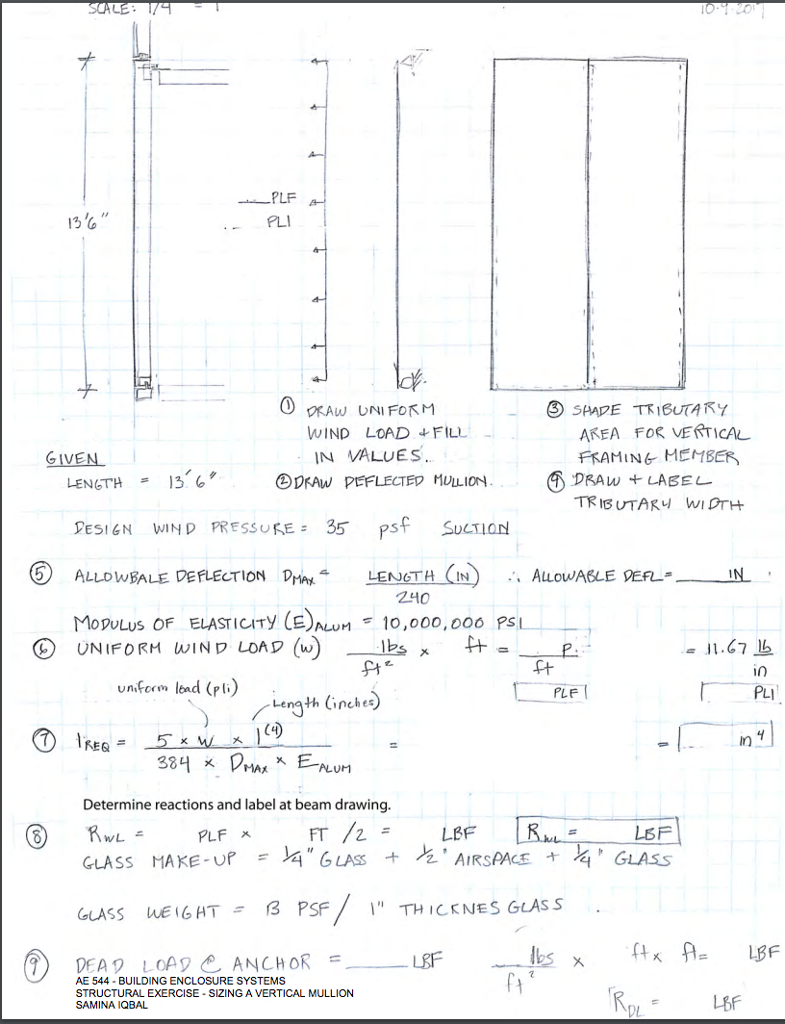 SCALE: 1/4 = 1
10-9-2017
13'6"
PLF
PLI
① DRAW UNIFORM
WIND LOAD + FILL
IN VALUES.
② DRAW DEFLECTED MULLION.
③ SHADE TRIBUTARY
AREA FOR VERTICAL
FRAMING MEMBER
④ DRAW + LABEL
TRIBUTARY WIDTH
GIVEN
LENGTH = 13'6"
DESIGN WIND PRESSURE = 35 psf SUCTION
⑤ ALLOWBALE DEFLECTION DMAX = LENGTH (IN) ∴ ALLOWABLE DEFL = ____ IN
240
MODULUS OF ELASTICITY (E)ALUM = 10,000,000 PSI
⑥ UNIFORM WIND LOAD (W) lbs x ft = P. = 11.67 lb
ft² ft in
PLF PLI
uniform load (pli)
Length (inches)
⑦ IREQ = 5 x W x l(4) = = in4
384 x DMAX x EALUM
Determine reactions and label at beam drawing.
⑧ RWL = PLF x FT /2 = LBF RWL = LBF
GLASS MAKE-UP = 1/4" GLASS + 1/2" AIRSPACE + 1/4" GLASS
GLASS WEIGHT = 13 PSF / 1" THICKNES GLASS
⑨ DEAD LOAD @ ANCHOR = ____ LBF lbs x ft x ft = LBF
ft²
RDL = LBF
AE 544 - BUILDING ENCLOSURE SYSTEMS
STRUCTURAL EXERCISE - SIZING A VERTICAL MULLION
SAMINA IQBAL